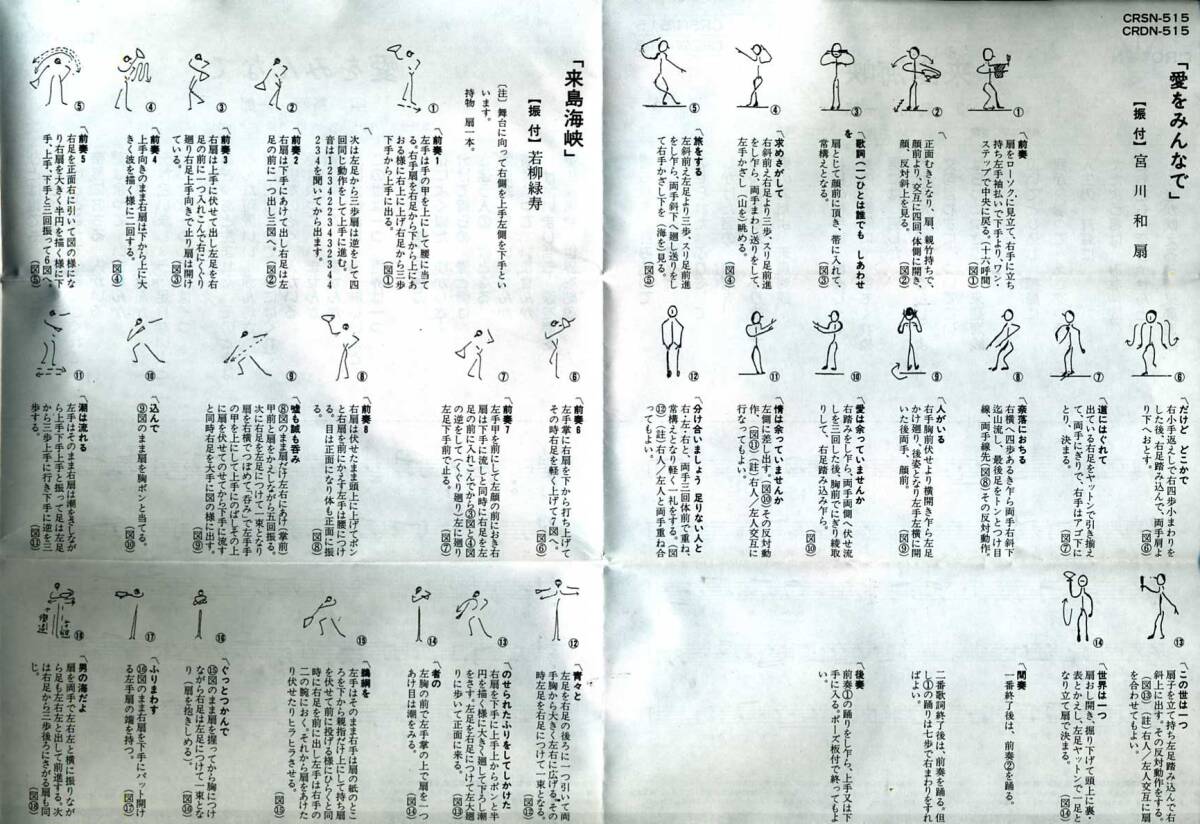 CRSN-515
CRDN-515
「愛をみんなで」
【振付】宮川和扇
①
②
③
④
⑤
〽前奏
扇をローソクに見立て、右手に立ち
持ち左手袖払いで下手より、ワン・
ステップで中央に戻る。（十六呼間）
（図①）
正面むきとなり、扇、親竹持ちで、
顔前より、交互に四回、体側に開き、
顔、反対斜上を見る。
（図②）
〽歌詞（一）ひとは誰でも しあわせ
を
扇にして顔前に頂き、帯に入れて、
常構えとなる。
（図③）
〽求めさがして
右斜前え右足より三歩、スリ足前進
をし乍ら、両手斜上まわし送りをして、
左手かざし（山を）眺める。
（図④）
〽旅をする
左斜前え左足より三歩、スリ足前進
をし乍ら、両手斜下へ廻し送りをし
て右手かざし下を（海を）見る。
（図⑤）
⑥
⑦
⑧
⑨
⑩
⑪
⑫
〽だけど どこかで
右小手返しで右四歩小まわりを
した後、右足踏み込んで、両手肩よ
り下へおとす。
（図⑥）
〽道にはぐれて
出ている右足をヤットンで引き揃え
て、両手にぎりで、右手はアゴ下に
とり、決まる。
（図⑦）
〽奈落におちる
右横へ四歩あるき乍ら両手右斜下
迄山流し、最後足をトンとつけ目
線、両手線先（図⑧）その反対動作。
〽人がいる
右手胸前伏せより横開き乍ら左足
かけ廻り、後姿となり左手左横に開
いた後両手、顔前。
（図⑨）
〽愛は余っていませんか
右踏みをし乍ら、両手両側へ伏せ流
しを三回した後、胸前でにぎり綾取
りして、右足踏み込み乍ら、
（図⑩）
〽情は余っていませんか
左側に差し出す。（図⑩）その反対動
作。（図⑪）（註）右人／左人交互に
行なってもよい。
〽分け合いましょう 足りない人と
右・左・右と、両手三回体前で重ね、
常構えとなり軽く一礼をする。（図
⑫）（註）右人／左人と両手重ね合
ってもよい。
⑬
⑭
〽この世は一つ
扇子を立て持ち左足踏み込んで右
斜上に出す。その反対動作をする。
（図⑬）（註）右人／左人交互に扇
を合わせてもよい。
〽世界は一つ
扇おし開き、掘り下げて頭上に裏・
表とかえし、左足ヤットンで一足と
なり立て扇で決まる。
（図⑭）
〽間奏
一番終了後は、前奏②を踊る。
二番歌詞終了後は、前奏を踊る。但
し①の踊りは七歩で右まわりをすれ
ばよい。
〽後奏
前奏①の踊りをし乍ら、上手又は下
手に入る。ポーズ板付で終ってもよ
い。
「来島海峡」
【振付】若柳緑寿
（注）舞台に向って右側を上手左側を下手とい
います。
持物 扇一本。
①
②
③
④
⑤
〽前奏1
左手は手の甲を上にして腰に当て
る。右手扇を右足から下から上にあ
おる様に右上に上げ右足から三歩
下手から上手に出る。
（図①）
次は左足から三歩扇は逆をして四
回同じ動作をして上手に進む。
音は1234223432341234
234を聞いてから出ます。
〽前奏2
右扇は下手にあけて出し左足は左
足の前に一つ出し三図へ。
（図②）
〽前奏3
右扇は上手に伏せて出し左足を右
足の前に一つ入れこんで右にくぐり
廻り右足上手向きで止り扇は開け
ている。
（図③）
〽前奏4
上手向きのまま右扇は下から上に大
きく波を描く様に二回する。
（図④）
〽前奏5
右足を正面右に引いて図の様にな
り右扇を大きく半円を描く様に下
手、上手、下手と三回振って6図へ。
（図⑤）
⑥
⑦
⑧
⑨
⑩
⑪
〽前奏6
左手掌に右扇を下から打ち上げて
その時右足を軽く上げて7図へ。
（図⑥）
〽前奏7
左手甲を前にして左顔の前におき右
扇は下手に流しと同時に右足を左
足の前に入れこんでから③図と④図
の逆をして（くぐり廻り）左に廻り
左足下手前で止る。
（図⑦）
〽前奏8
右扇は伏せたまま頭上に上げてポン
と右扇を前にかえす左手は腰につけ
る。目は正面になり体も正面に振
る。
（図⑧）
〽嘘も誠も呑み
⑧図のまま扇だけ左右にあけ（掌前）
甲前と扇をかえしながら五回振る。
次に右足を左足につけて一束となり
扇を右横でつぼめて〝呑み〟で左手手
の甲を上にして上手にのばしその上
に扇を伏せてのせてから下手に逆す
と同時右足を大手に図の様に出す。
（図⑨）
〽込んで
⑨図のまま扇を胸ポンと当てる。
（図⑩）
〽潮は流れる
左手はそのまま右扇は潮をさしなが
ら上手下手上手と振って足は左足
から三歩上手に行き下手に逆を三
歩する。
（図⑪）
⑫
⑬
⑭
⑮
⑯
⑰
⑱
〽青々と
左足を右足の後ろに一つ引いて両
手胸から大きく左右に広げるその
時左足を右足につけて一束となる。
（図⑫）
〽のせられたふりをしてしかけた
右扇を下手に上手上からポンと半
円を描く様に大きく廻して下ろし潮
をさす。左足を右足につけて左大廻
りに歩いて正面に来る。
（図⑬）
〽者の
左胸の前で左手掌の上で扇を一つ
あけ目は潮をみる。
（図⑭）
〽鵜鋼を
左手はそのまま右手は扇の紙のとこ
ろを下から親指だけ上にして持ち扇
を伏せて前に投げる様にひらくと同
時に右足を前に出し左手は右手の
二の腕におく、それから扇をあけた
り伏せたりヒラヒラさせる。
（図⑮）
〽ぐっとつかんで
⑮図のまま扇を握ってから胸につけ
ながら右足は左足につけて一束とな
り（扇を抱きしめる）。
（図⑯）
〽ふりまわす
⑯図のまま右扇を下手にパット開け
る左手扇の端を持つ。
（図⑰）
〽男の海だよ
扇を両手で左右左と横に振りなが
ら足も左右左と出して前進する。次
は右足から三歩後ろにさがる扇も同
じ。
（図⑱）